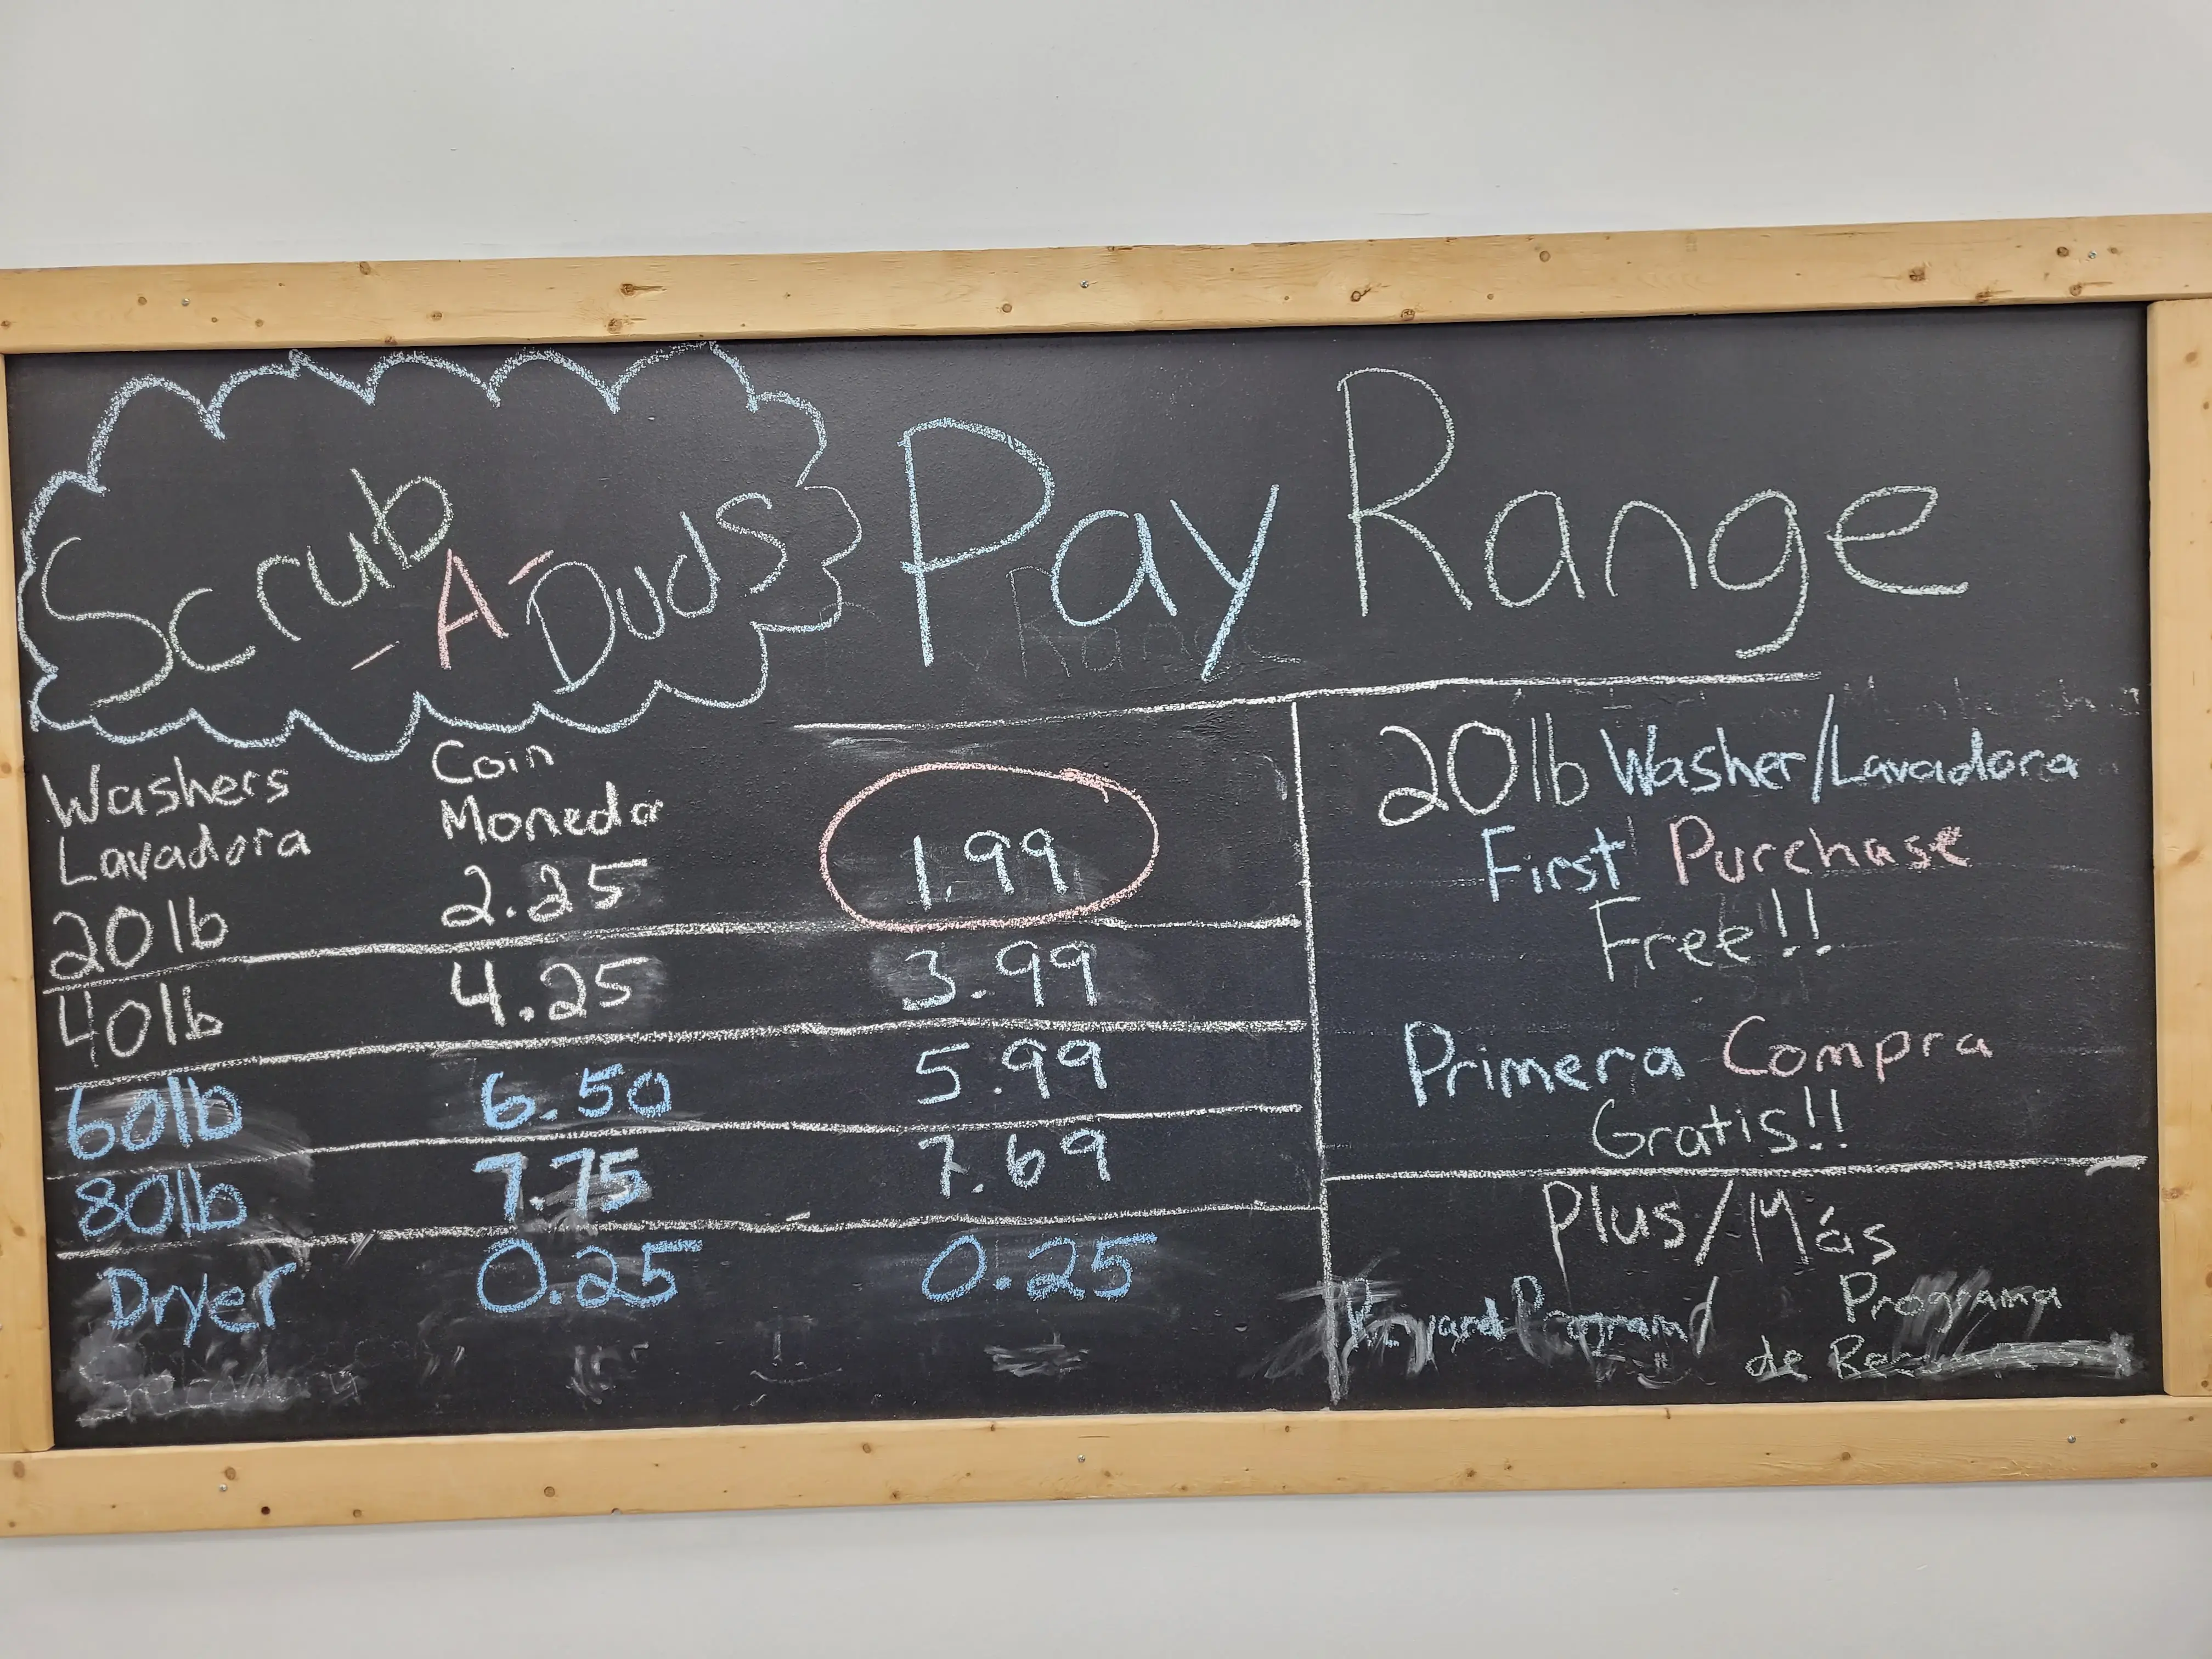 Scrub
-A-
Duds
Pay Range
Range
Washers
Lavadora
Coin
Moneda
20lb 2.25 1.99
40lb 4.25 3.99
60lb 6.50 5.99
80lb 7.75 7.69
Dryer 0.25 0.25
20lb Washer/Lavadora
First Purchase
Free!!
Primera Compra
Gratis!!
Plus/Más
Program
Programa
de